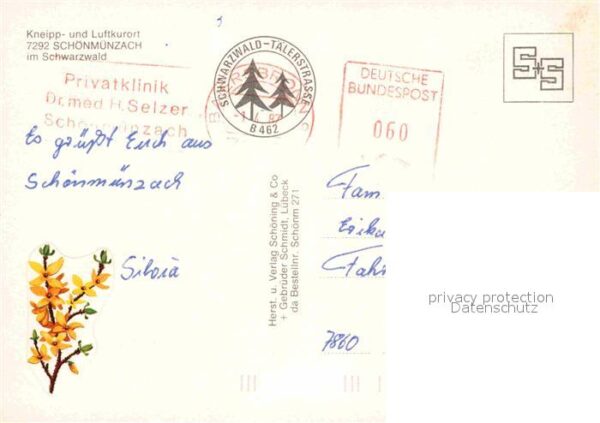 Kneipp- und Luftkurort
7292 SCHÖNMÜNZACH
im Schwarzwald
Privatklinik
Dr.med H.Selzer
Schönmünzach
SCHWARZWALD-TÄLERSTRASSE
B 462
DEUTSCHE
BUNDESPOST
060
S+S
Es grüßt Euch aus
Schönmünzach
Silvia
Herst. u. Verlag Schöning & Co
+ Gebrüder Schmidt, Lübeck
da Bestellnr. Schönm 271
Fam
Erika
Fah
7860
privacy protection
Datenschutz